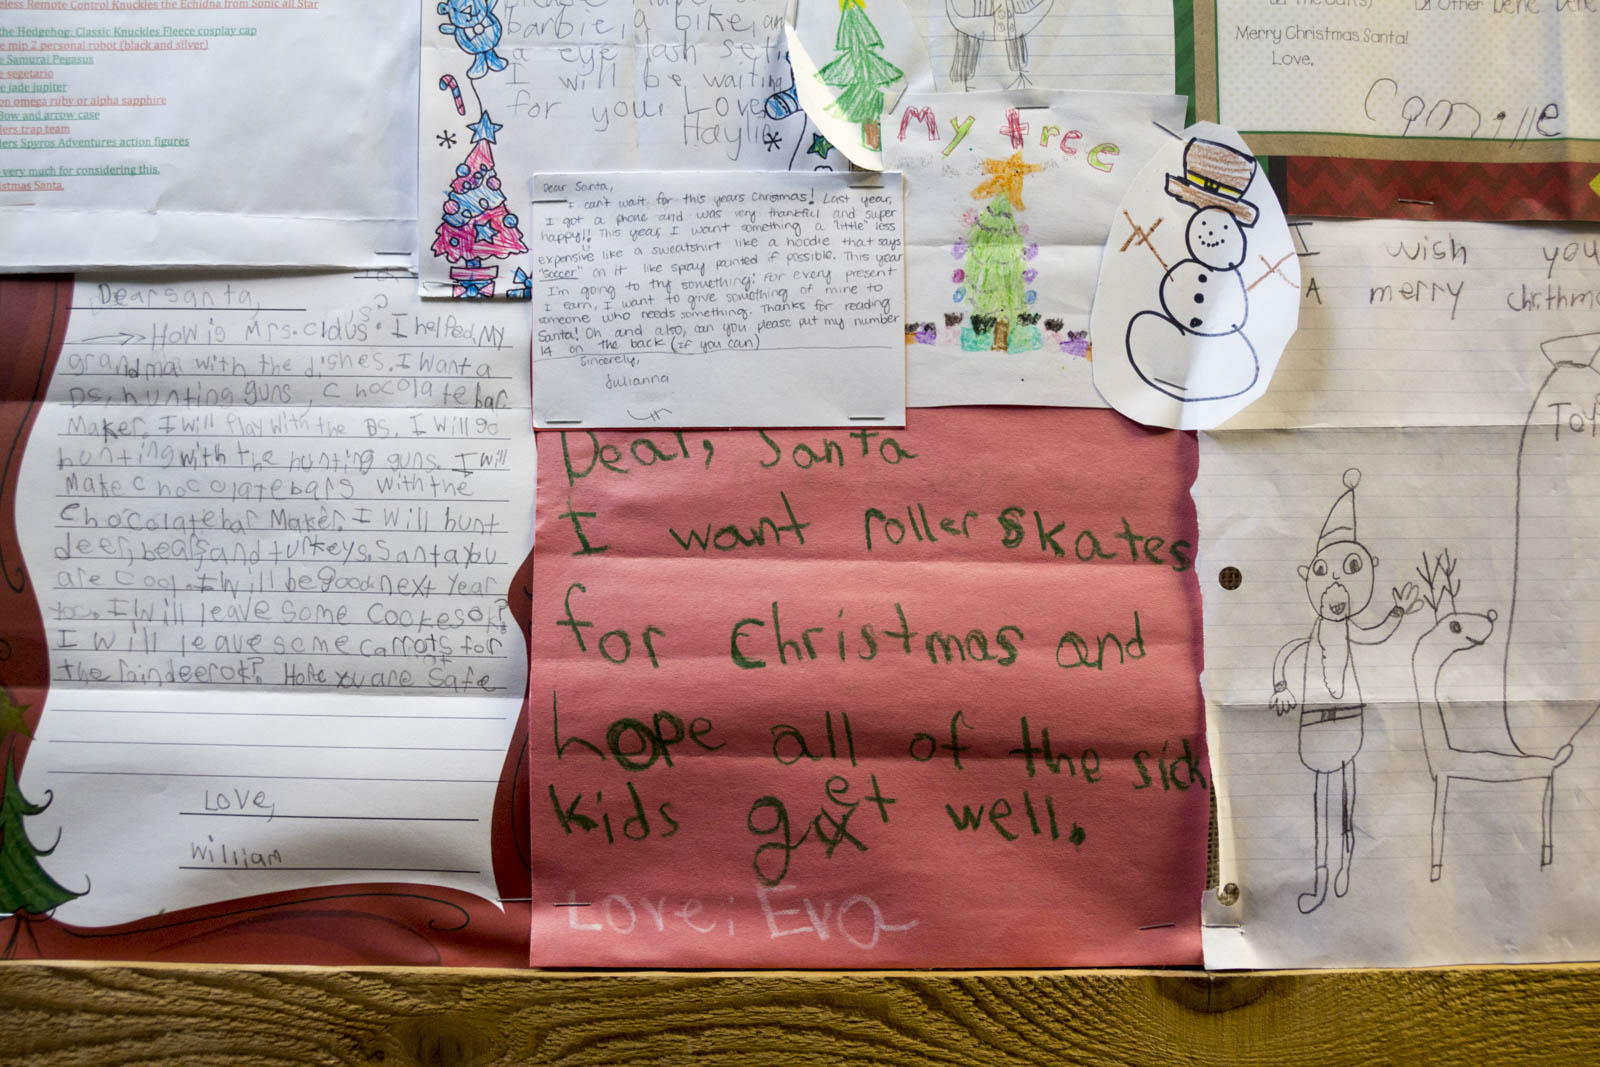 eless Remote Control Knuckles the Echidna from Sonic all Star
the Hedgehog: Classic Knuckles Fleece cosplay cap
e mip 2 personal robot (black and silver)
e Samurai Pegasus
e segetario
e jade jupiter
on omega ruby or alpha sapphire
Bow and arrow case
lers trap team
ders Spyros Adventures action figures
very much for considering this.
istmas Santa.
barbie, a bike, an
a eye lash set
I will be waiting
for you. Love
Haylie
My tree
Merry Christmas Santa!
Love,
Camille
Dear Santa,
I can't wait for this years Christmas! Last year,
I got a phone and was very thankful and super
happy!! This year, I want something a "little" less
expensive like a sweatshirt like a hoodie that says
"soccer" on it like spray painted if possible. This year
I'm going to try something: For every present
I earn, I want to give something of mine to
someone who needs something. Thanks for reading
Santa! Oh and also, can you please put my number
14 on the back (if you can)
Sincerely,
Julianna
Dear santa,
How is Mrs. claus? I helped My
grandma with the dishes. I want a
DS, hunting guns, chocolate bar
Maker. I will play with the DS. I will go
hunting with the hunting guns. I will
make chocolate bars with the
chocolate bar Maker. I will hunt
deer, bears and turkeys. Santa you
are cool. I will be good next year
too. I will leave some cookes ok?
I will leave some carrots for
the raindeer ok? Hope you are safe
Love,
William
Dear, Santa
I want roller skates
for christmas and
hope all of the sick
kids get well.
Love, Eva
I wish you
A merry christma
Toy